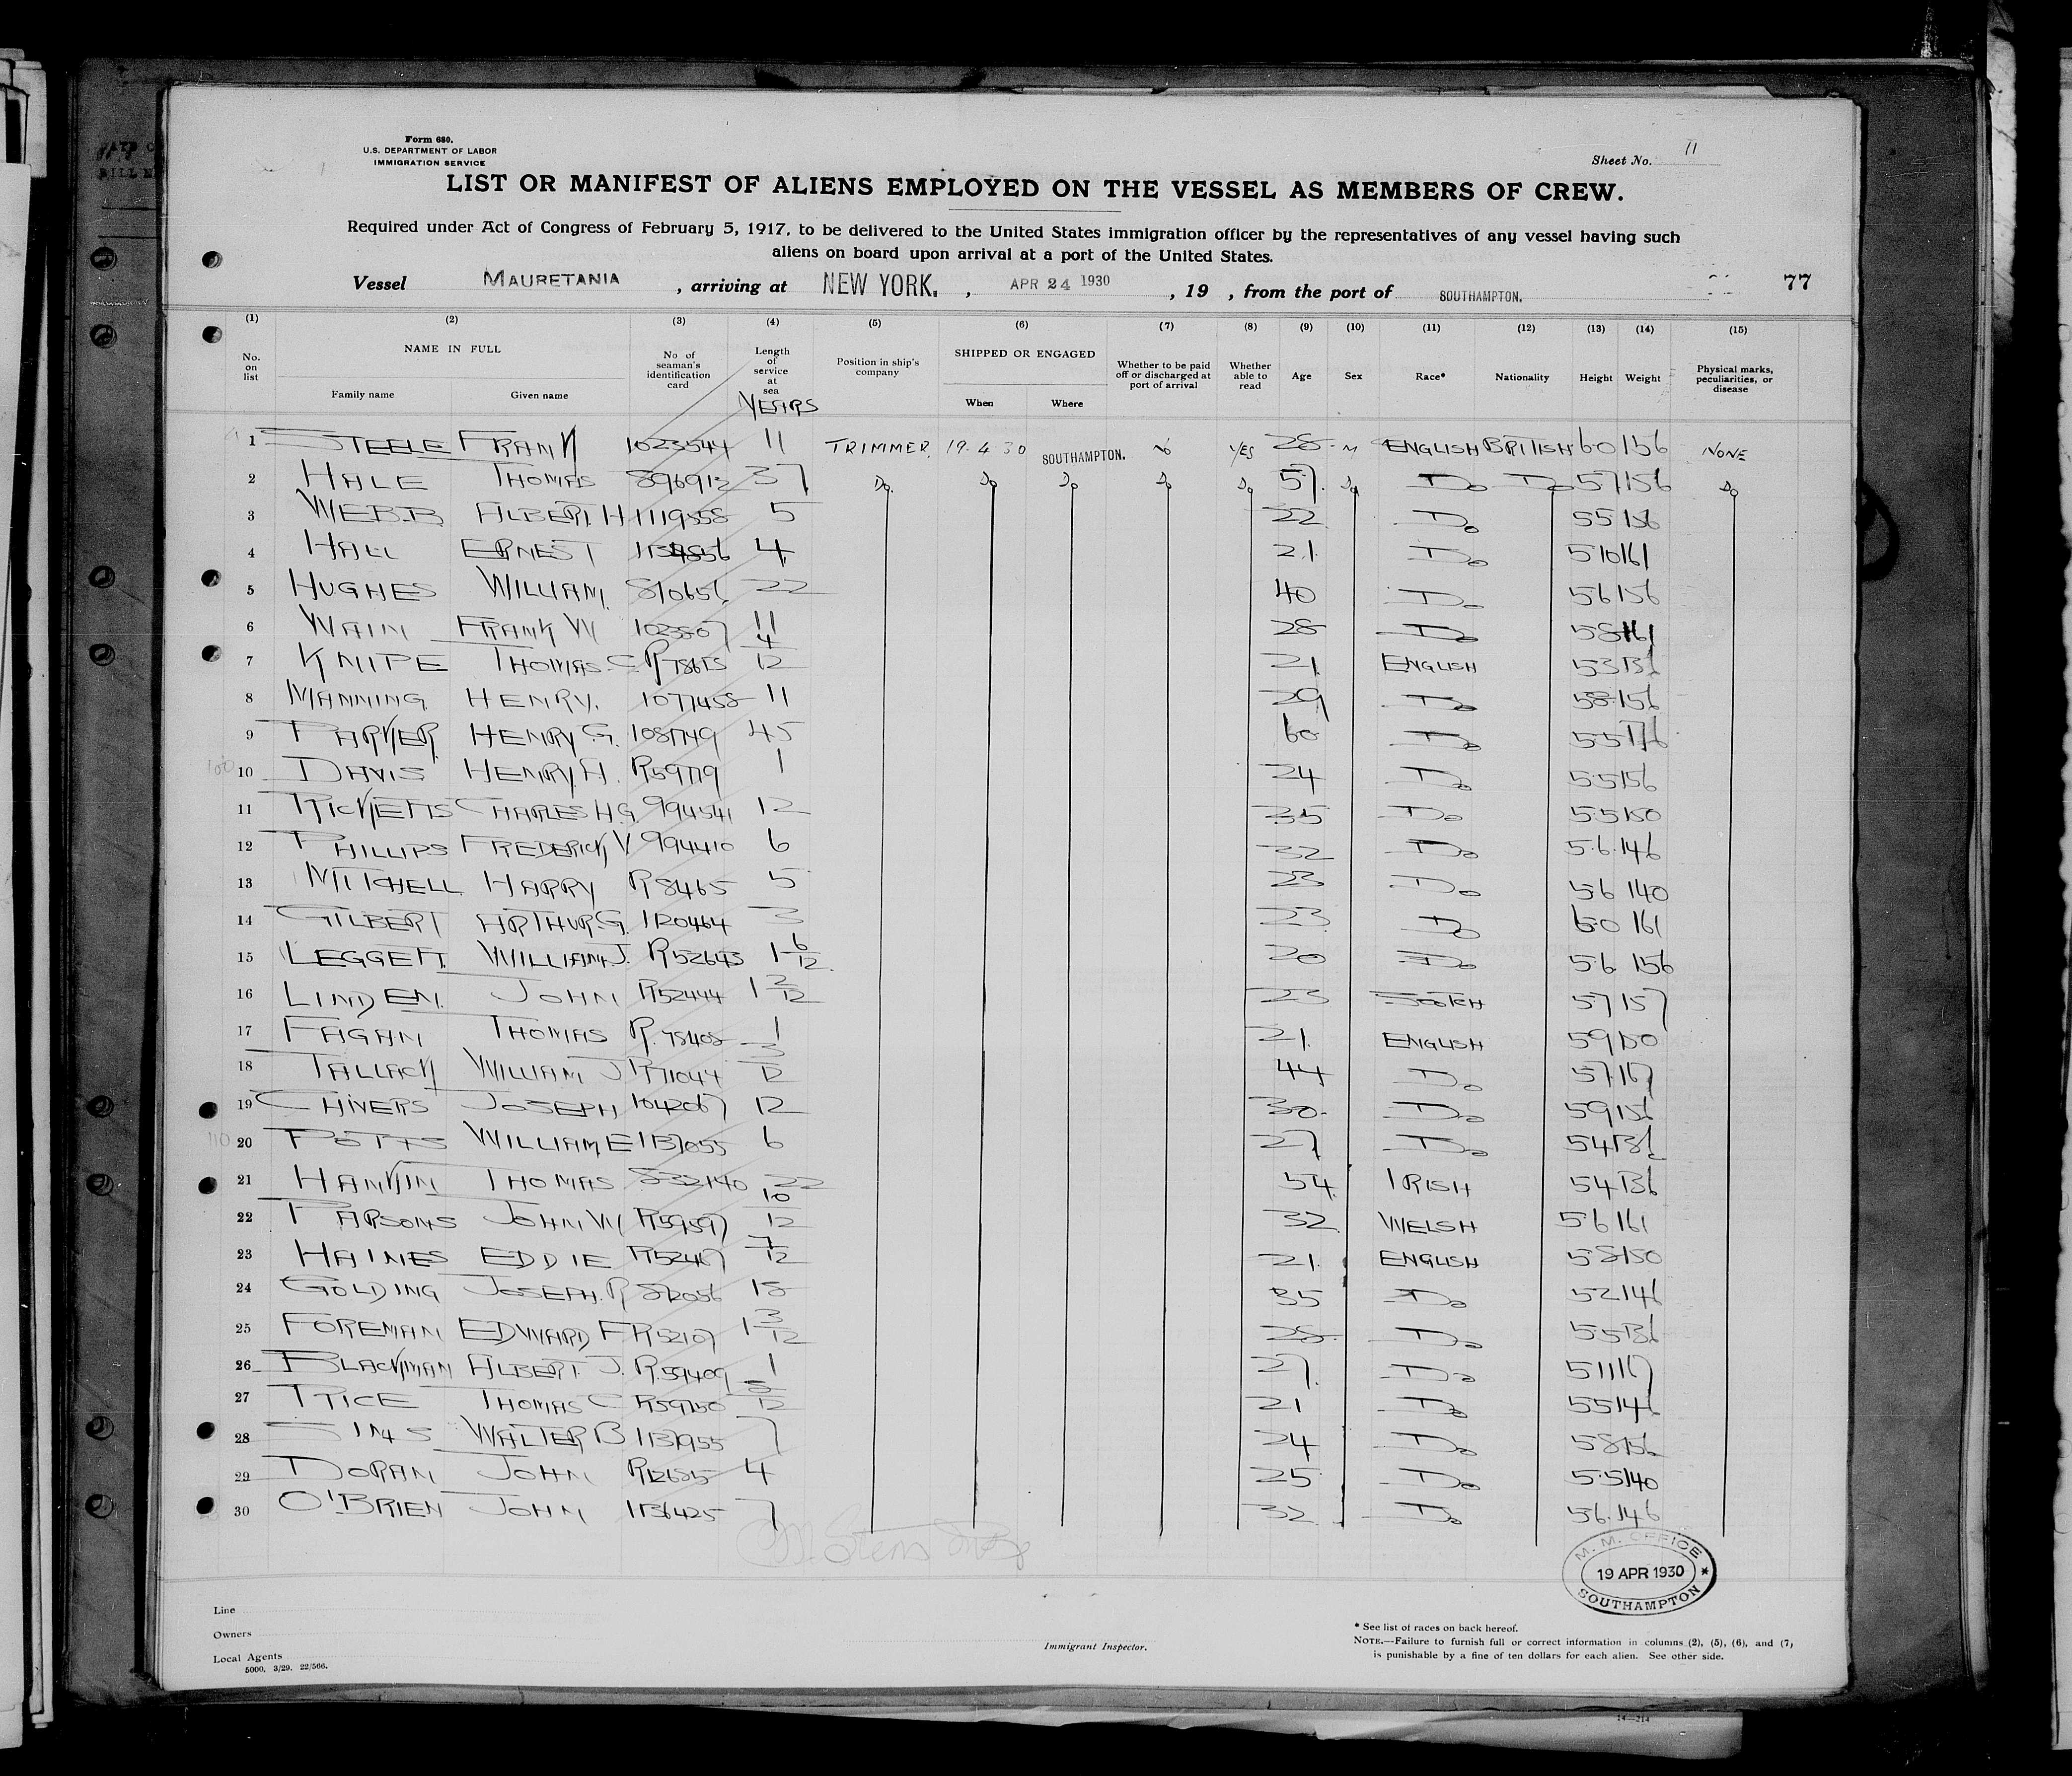 Form 680.
U.S. DEPARTMENT OF LABOR
IMMIGRATION SERVICE
Sheet No. 11
LIST OR MANIFEST OF ALIENS EMPLOYED ON THE VESSEL AS MEMBERS OF CREW.
Required under Act of Congress of February 5, 1917, to be delivered to the United States immigration officer by the representatives of any vessel having such
aliens on board upon arrival at a port of the United States.
Vessel MAURETANIA, arriving at NEW YORK., APR 24 1930, 19 , from the port of SOUTHAMPTON. 77
(1) (2) (3) (4) (5) (6) (7) (8) (9) (10) (11) (12) (13) (14) (15)
No. on list NAME IN FULL Family name Given name No of seaman's identification card Length of service at sea YEARS Position in ship's company SHIPPED OR ENGAGED When Where Whether to be paid off or discharged at port of arrival Whether able to read Age Sex Race* Nationality Height Weight Physical marks, peculiarities, or disease
1 STEELE FRANK 1023544 11 TRIMMER. 19.4.30 SOUTHAMPTON. No YES 28 M ENGLISH BRITISH 6.0 156 NONE
2 HALE THOMAS 896912 37 Do. Do Do Do Do 57. Do Do Do 57 156 Do
3 WEBB ALBERT. H 1119558 5 22 Do 55 156
4 HALL ERNEST 4 21. Do 510 161
5 HUGHES WILLIAM. 810656. 22 40 Do 56 156
6 WAIN FRANK W 1023507 11 28 Do 58 161
7 KNIPE THOMAS. C 4/12 21 ENGLISH 53 136
8 MANNING HENRY. 1077458 11 29 Do 58 156
9 PARKER HENRY G. 108749 45 60 Do 55 176
10 DAVIS HENRY. H. R59779 1 24 Do 5.5 156
11 RICKETTS CHARLES H.G 994541 12 35 Do 5.5 150
12 PHILLIPS FREDERICK V 994410 6 32 Do 5.6. 146
13 MITCHELL HARRY R8465 5 23 Do 56 140
14 GILBERT ARTHUR G. 1120464 3 23 Do 6.0 161
15 LEGGETT WILLIAM. J. R52645 1 6/12 20 Do 5.6 156
16 LINDEN. JOHN R52444 1 2/12 23 SCOTCH 57 157
17 FAGAN THOMAS R.78408 1 21. ENGLISH 59 150
18 TALLACK WILLIAM J R71044 3/12 44 Do 57. 167
19 CHIVERS JOSEPH 1042067 12 30. Do 59 156
20 POTTS WILLIAM E 1137055 6 27 Do 54 136
21 HANKIN THOMAS 832140 22 54. IRISH 54 136
22 PARSONS JOHN W R59597 10/12 32 WELSH 5.6 161
23 HAINES EDDIE R52467 7/12 21. ENGLISH 5.8 150
24 GOLDING JOSEPH. R 872056 18 35 Do 52 146
25 FOREMAN EDWARD F R52107 1 3/12 28. Do 5.5 136
26 BLACKMAN ALBERT J. R.59409 1 27. Do 511 167
27 PRICE THOMAS C R59750 21 Do 55 146
28 SIMS WALTER B 1137955 7 24 Do 58 156
29 DORAN JOHN R12685 4 25 Do 5.5 140
30 O'BRIEN JOHN 1136425 7 32 Do 56. 146
M. M. OFFICE
19 APR 1930
SOUTHAMPTON
Line
Owners
Local Agents
5000. 3/29. 22/566.
Immigrant Inspector.
* See list of races on back hereof.
NOTE.—Failure to furnish full or correct information in columns (2), (5), (6), and (7,
is punishable by a fine of ten dollars for each alien. See other side.
14—214